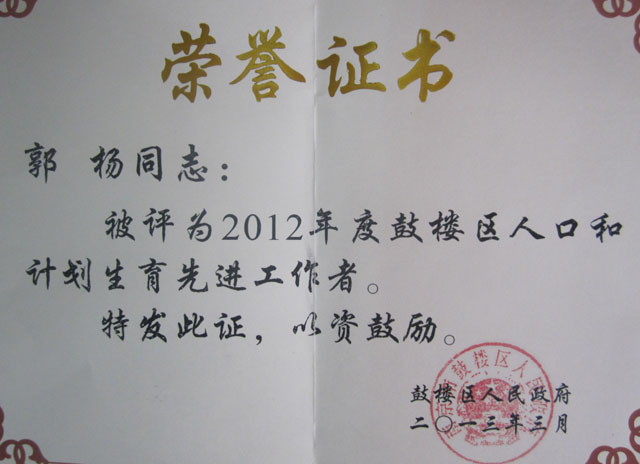 荣誉证书
郭 杨同志：
被评为2012年度鼓楼区人口和
计划生育先进工作者。
特发此证，以资鼓励。
鼓楼区人民政府
二〇一三年三月